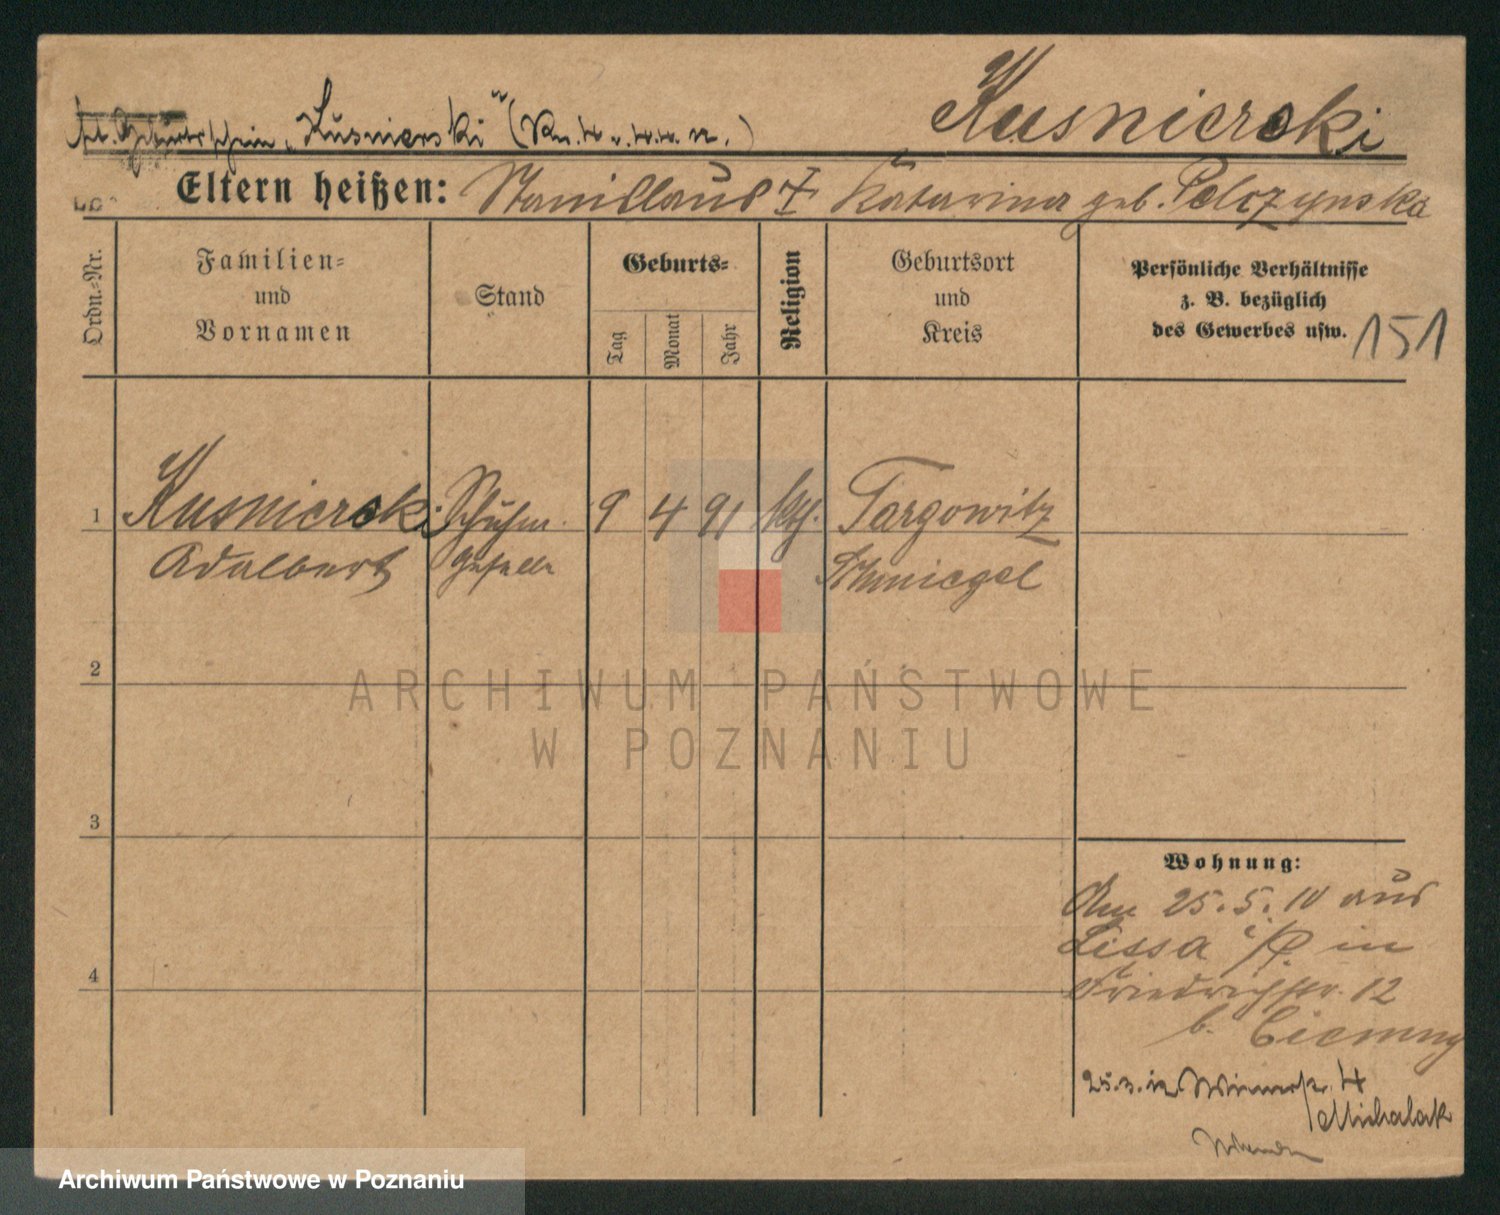 lt. Geburtsschein „Kusnierski" (
Kusnierski
Eltern heißen: Stanislaus † Katarina geb. Pelczynska
Ordn.-Nr.
Familien-
und
Vornamen
Stand
Geburts-
Tag
Monat
Jahr
Religion
Geburtsort
und
Kreis
Persönliche Verhältnisse
z. B. bezüglich
des Gewerbes usw. 151
1 Kusnierski Schuhm. 9 4 91 kth. Targowitz
Adalbert geselle Schmiegel
2
3
4
Wohnung:
Am 25.5.10 aus
Lissa i/P. in
Friedrichstr. 12
b. Ciemny
25.3.12 4
Michalak
ARCHIWUM PAŃSTWOWE
W POZNANIU
Archiwum Państwowe w Poznaniu